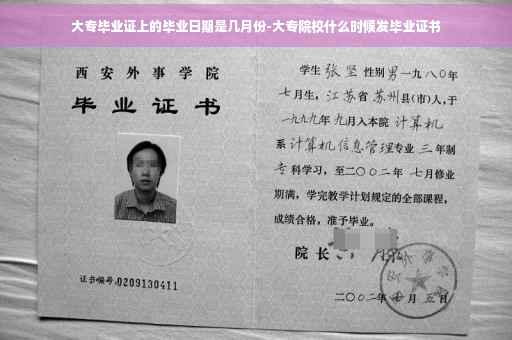 大专毕业证上的毕业日期是几月份-大专院校什么时候发毕业证书
西安外事学院
毕业证书
证书编号:0209130411
学生 张坚 性别男一九八〇年
七月生，江苏省苏州县(市)人，于
一九九九年九月入本院 计算机
系计算机信息管理专业三年制
专科学习，至二〇〇二年七月修业
期满，学完教学计划规定的全部课程，
成绩合格，准予毕业。
院长
二〇〇二年 月五日